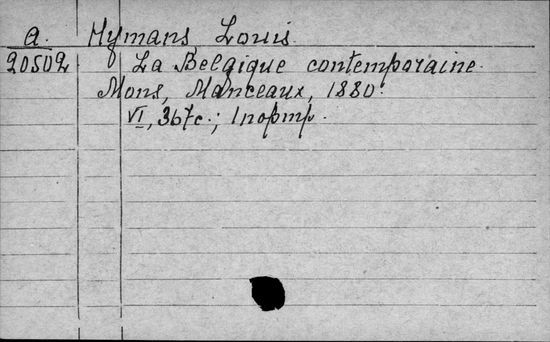 A. Hymans Louis.
20502 La Belgique contemporaine.
Mons, Manceaux, 1880.
VI, 367c.; 1 порт.